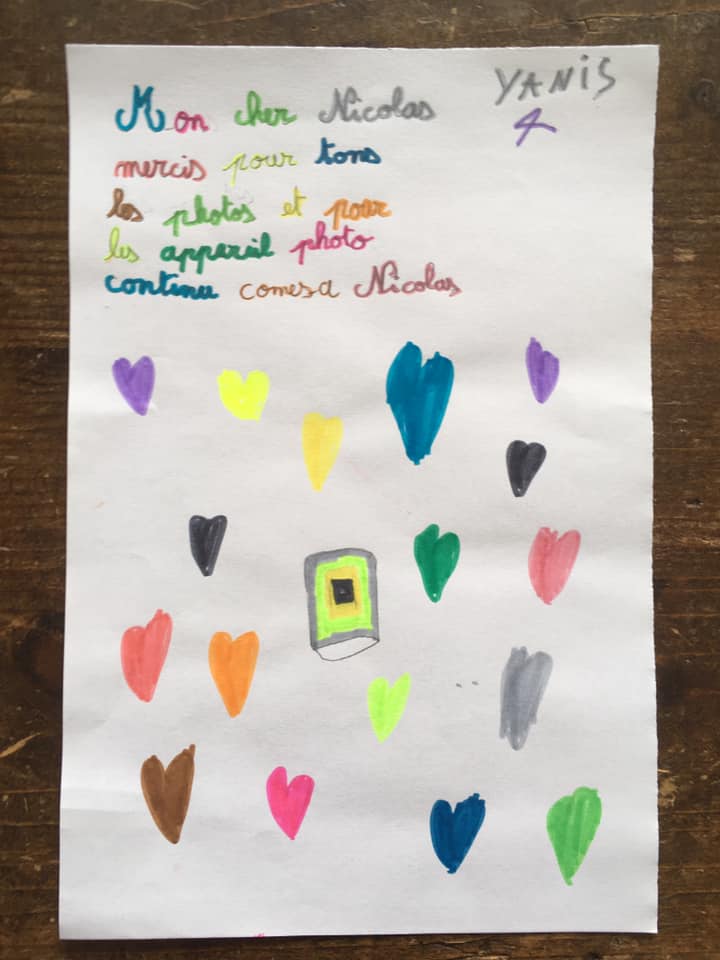 YANIS
Mon cher Nicolas
mercis pour tons
les photos et pour
les appereil photo
continu comesa Nicolas